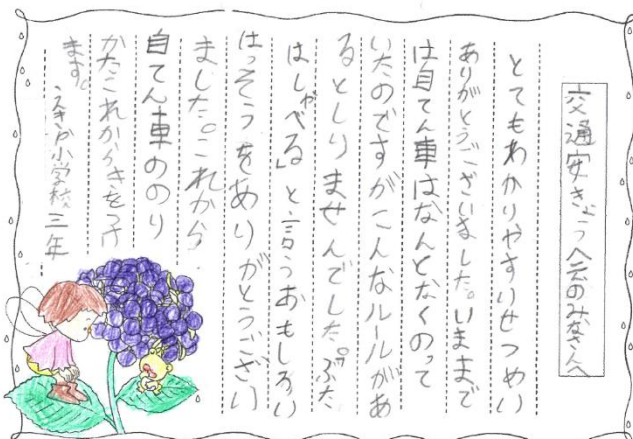 交通安きょう会のみなさんへ
とてもわかりやすいせつめい
ありがとうございました。いままで
は自てん車はなんとなくのって
いたのですがこんなルールがあ
るとしりませんでした。「ぶた
はしゃべる」と言うおもしろい
はっそうをありがとうござい
ました。これから
自てん車ののり
かたこれからきをつけ
ます。
小学校三年